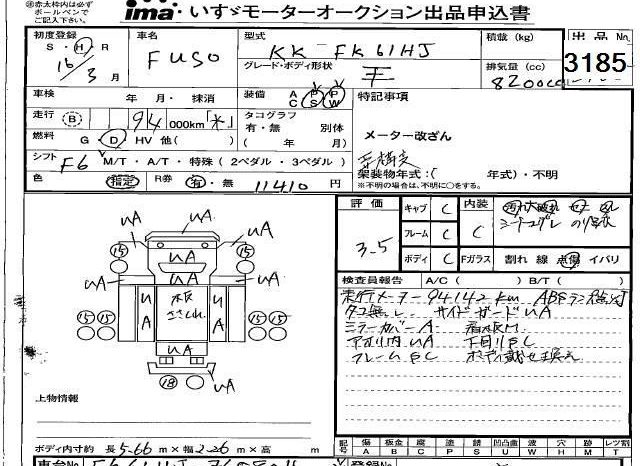 ㊟赤太枠内は必ず
ボールペンで
ご記入下さい。
ima いすゞモーターオークション出品申込書
初度登録
S・H・R
16年
3月
車名
FUSO
型式
KK-FK61HJ
グレード・ボディ形状
平
積載(kg)
排気量(cc)
8200cc
出品No.
3185
車検 年・月・抹消
装備 A P P
C S W
特記事項
走行 B 94 000km「米」
タコグラフ
有・無 別体
( 年 月)
メーター改ざん
燃料 G・D・HV 他( )
シフト F6 M/T・A/T・特殊(2ペダル・3ペダル)
架装物年式:( 年式)・不明
※不明の場合は、不明に○をする。
色 指定 R券 有・無 11410円
評価
3.5
キャブ C
フレーム C
ボディ C
内装
C
Fガラス 割れ 線 点傷 イバリ
検査員報告 A/C( ) B/T( )
走行メーター 94142km ABSランプ点灯
タコ無し サイドガードUA
ミラーカバーA
アオリ内UA 下回りPC
フレームPC ボディ載せ換え
UA
UA UA
15 15
UA UA UA
U
A
木板
ささくれ
U
A
15 15 15 15
UA
18 UA
上物情報
ボディ内寸約 長5.66m×幅2.26m×高 m
記号 傷 板金 腐 塗 錆 凹 凸凹曲 波 穴 跡 レ ツ割
A B C P S U W H M T
車台No.